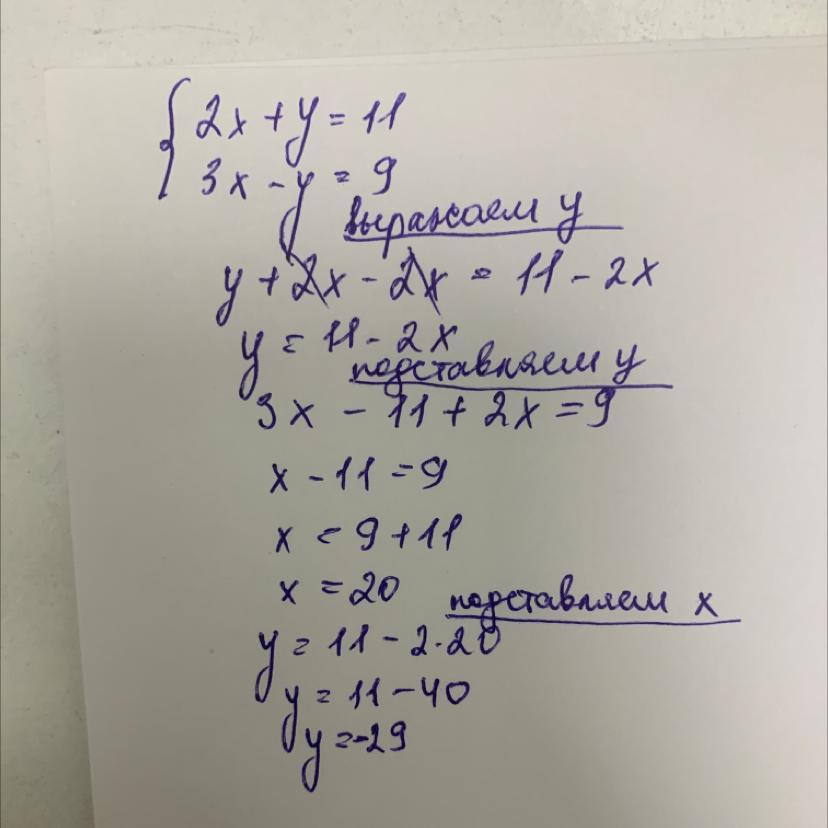 { 2x + y = 11
3x - y = 9
выражаем y
y + 2x - 2x = 11 - 2x
y = 11 - 2x
подставляем y
3x - 11 + 2x = 9
x - 11 = 9
x = 9 + 11
x = 20
подставляем x
y = 11 - 2·20
y = 11 - 40
y = -29